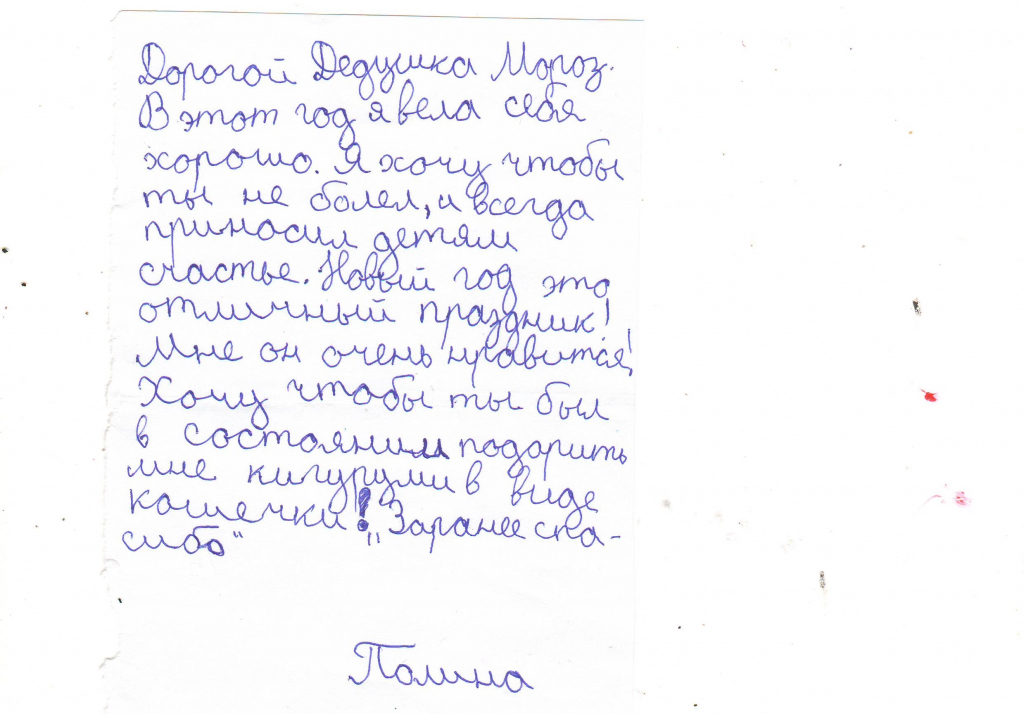 Дорогой Дедушка Мороз.
В этот год я вела себя
хорошо. Я хочу чтобы
ты не болел, и всегда
приносил детям
счастье. Новый год это
отличный праздник!
Мне он очень нравится!
Хочу чтобы ты был
в состоянии подарить
мне кигуруми в виде
кошечки! „Заранее спа-
сибо"
Полина